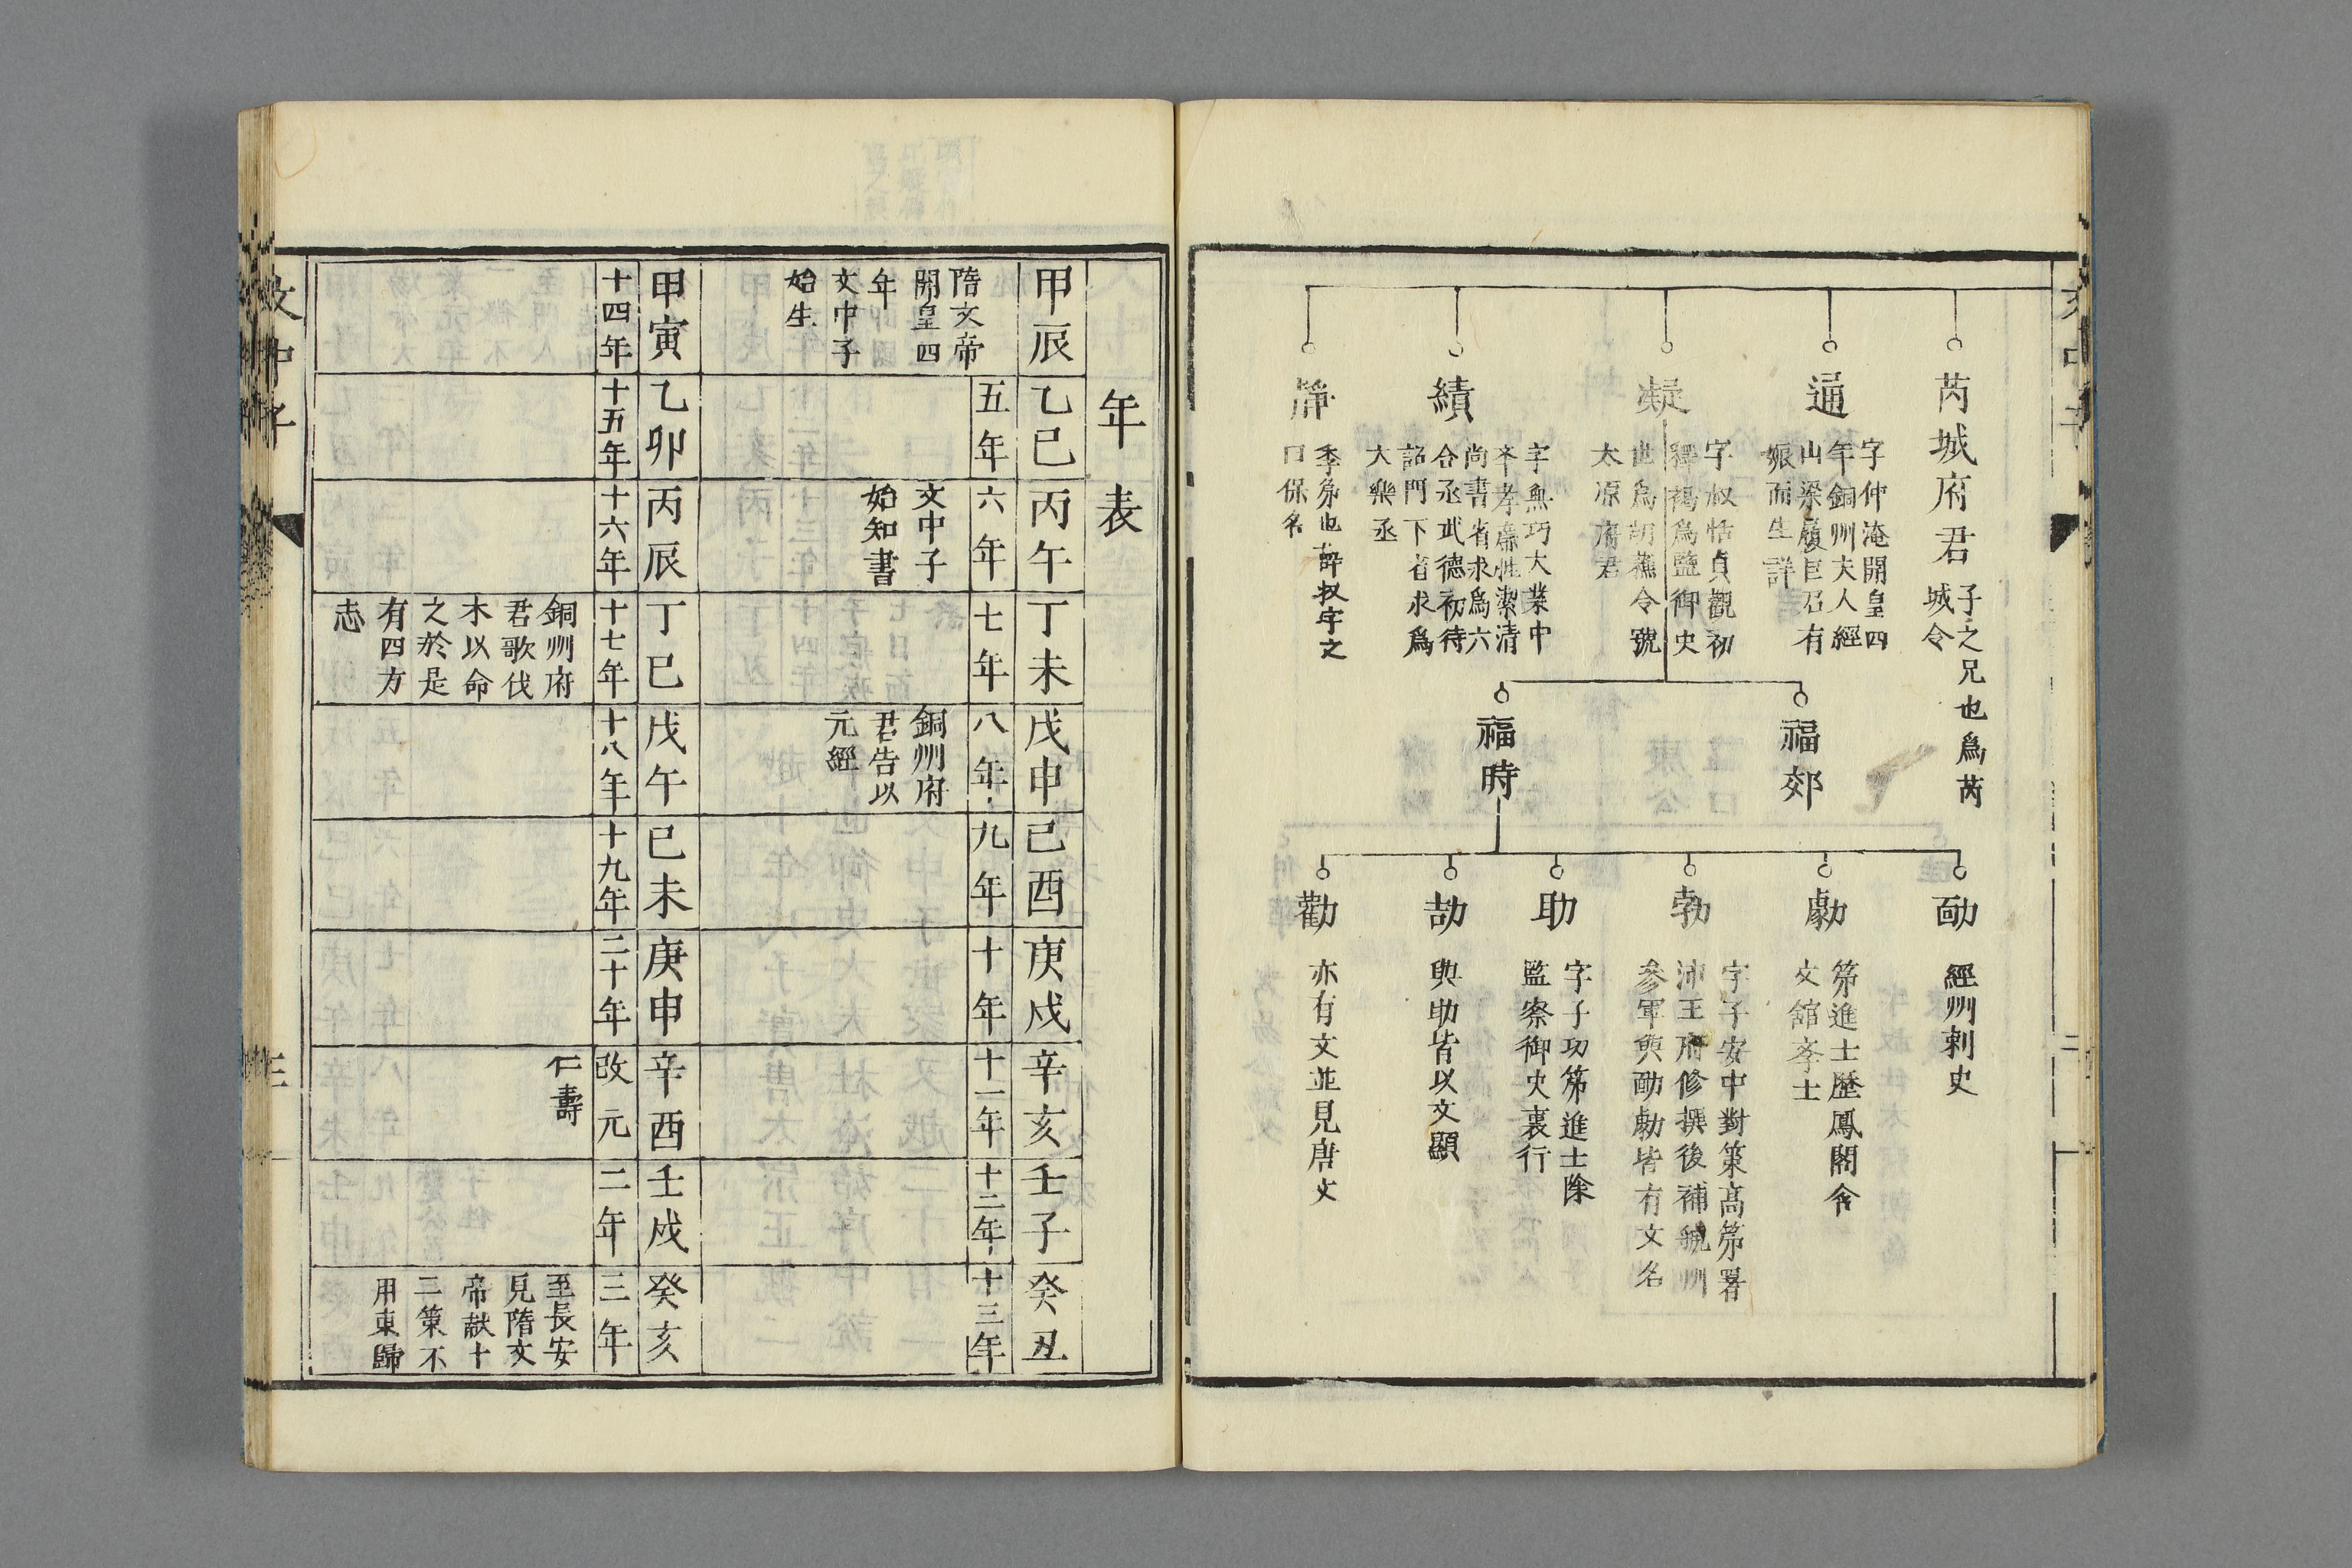 芮城府君
子之兄也爲芮
城令
通
字仲淹開皇四
年銅州夫人經
山梁履巨石有
娠而生詳
凝
字叔恬貞觀初
釋褐爲監御史
出爲胡蘓令號
太原府君
績
字無功大業中
舉孝廉性潔清
尚書省求爲六
合丞武德初待
詔門下省求爲
大樂丞
靜
季弟也薛收字之
曰保名
福郊
福畤
勔
經州刺史
勮
第進士歷鳳閣舍
文舘斈士
勃
字子安中對策高第署
沛王府修撰後補虢州
參軍與勔勮皆有文名
助
字子功第進士除
監察御史裏行
劼
與助皆以文顯
勸
亦有文並見唐文
年表
甲辰
隋文帝
開皇四
年
文中子
始生
乙巳
五年
丙午
六年
文中子
始知書
丁未
七年
戊申
八年
銅州府
君告以
元經
己酉
九年
庚戌
十年
辛亥
十一年
壬子
十二年
癸丑
十三年
甲寅
十四年
乙卯
十五年
丙辰
十六年
丁巳
十七年
銅州府
君歌伐
木以命
之於是
有四方
志
戊午
十八年
己未
十九年
庚申
二十年
辛酉
改元
仁壽
壬戌
二年
癸亥
三年
至長安
見隋文
帝献十
二策不
用東歸
文中子
三